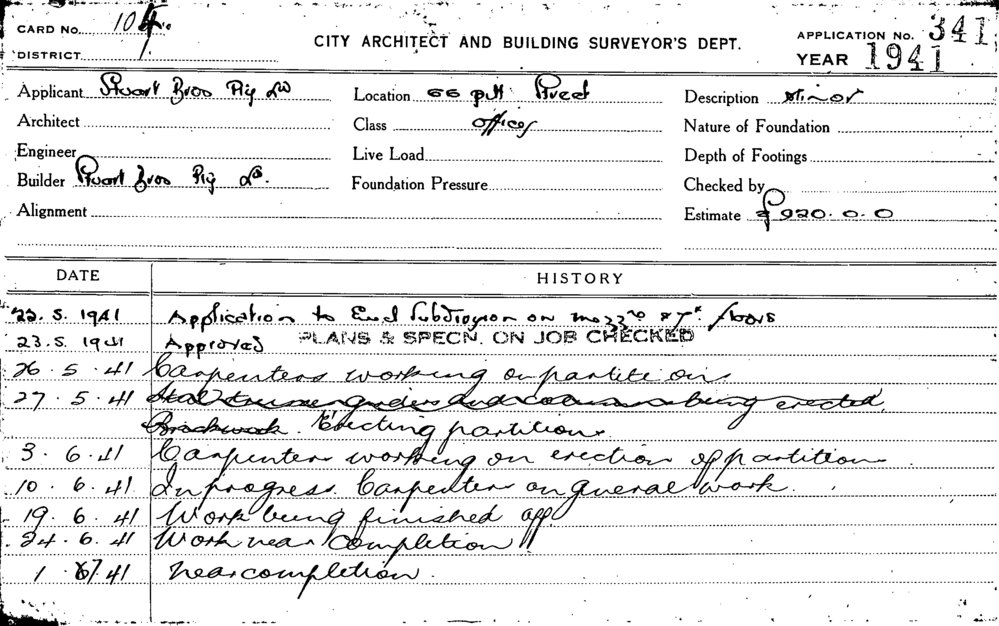 CARD No. 104.
DISTRICT
CITY ARCHITECT AND BUILDING SURVEYOR'S DEPT.
APPLICATION No. 341
YEAR 1941
Applicant Stuart Bros Pty Ld
Location 66 pitt Street
Description Minor
Architect
Class offices
Nature of Foundation
Engineer
Live Load
Depth of Footings
Builder Stuart Bros Pty Ld.
Foundation Pressure
Checked by
Alignment
Estimate £920.0.0
DATE HISTORY
22.5.1941 Application to Erect Subdivision on mezze & 7th floors
23.5.1941 Approved PLANS & SPECN. ON JOB CHECKED
26.5.41 Carpenters working on partitions
27.5.41 Steel trusses girders and columns being erected.
Brickwork. Erecting partitions.
3.6.41 Carpenters working on erection of partitions
10.6.41 In progress. Carpenters on general work.
19.6.41 Work being finished off
24.6.41 Work near completion
1.7.41 near completion.